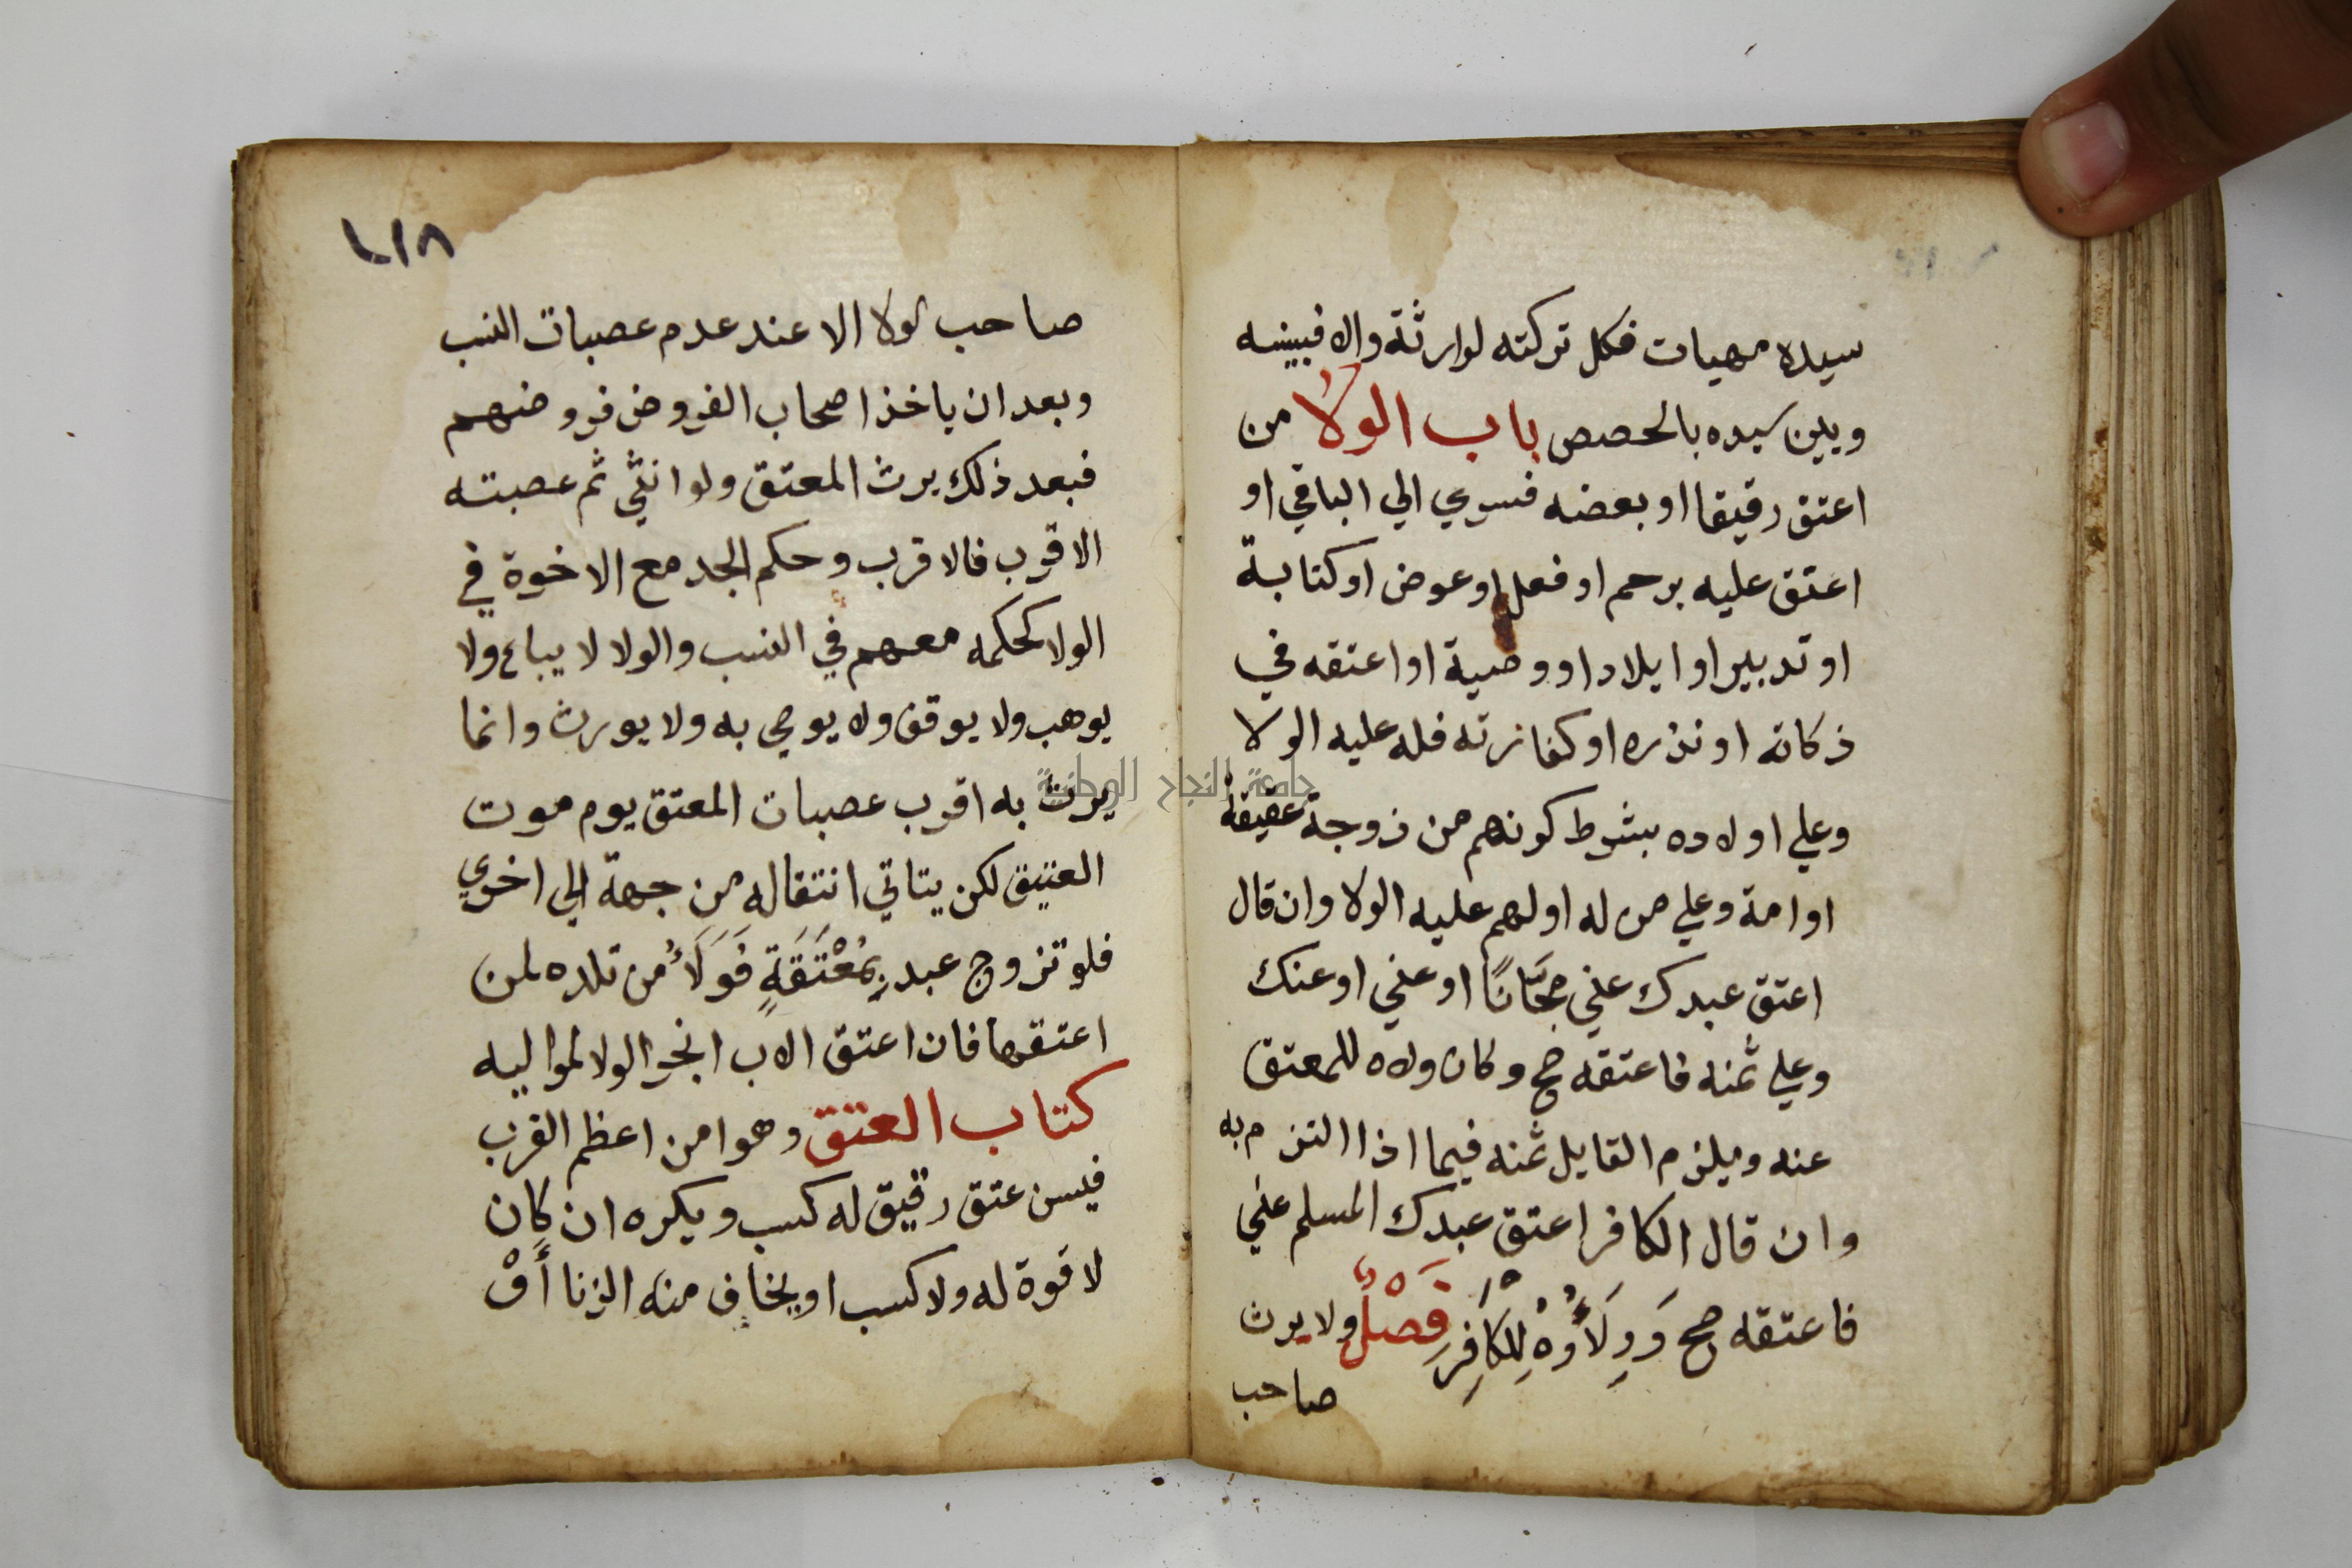 سيده مهيات فكل تركته لوارثة والا فبينه
وبين سيده بالحصص باب الولا من
اعتق رقيقا او بعضه فسري الي الباقي او
اعتق عليه برحم او فعل او عوض او كتابة
او تدبير او ايلاد او وصية او اعتقه في
زكاته او نذره او كفارته فله عليه الولا
وعلي اولاده بشرط كونهم من زوجة عتيقة
او امة وعلي من له اولهم عليه الولا وان قال
اعتق عبدك عني مجَّانًا او عني او عنك
وعلي ثمنه فاعتقه صح وكان ولاه للمعتق
عنه ويلزم القايل ثمنه فيما اذا التزم به
وان قال الكافر اعتق عبدك المسلم عني
فاعتقه صح وَوِلَأُوهُ لِلْكَافِرِ فَصْلٌ ولا يرث
صاحب
٢١٨
صاحب لولا الا عند عدم عصبات النسب
وبعد ان ياخذ اصحاب الفروض فروضهم
فبعد ذلك يرث المعتق ولو انثي ثم عصبته
الاقرب فالاقرب وحكم الجد مع الاخوة في
الولا كحكمه معهم في النسب والولا لا يباع ولا
يوهب ولا يوقف ولا يوصي به ولا يورث وانما
يرث به اقرب عصبات المعتق يوم موت
العتيق لكن يتاتي انتقاله من جهة الي اخري
فلو تزوج عبد بِمُعْتَقَةٍ فَوَلَأُ من تلده لمن
اعتقها فان اعتق الاب انجر الولا لمواليه
كتاب العتق وهوا من اعظم القرب
فيسن عتق رقيق له كسب ويكره ان كان
لا قوة له ولا كسب او يخاف منه الزنا أَوْ
جامعة النجاح الوطنية